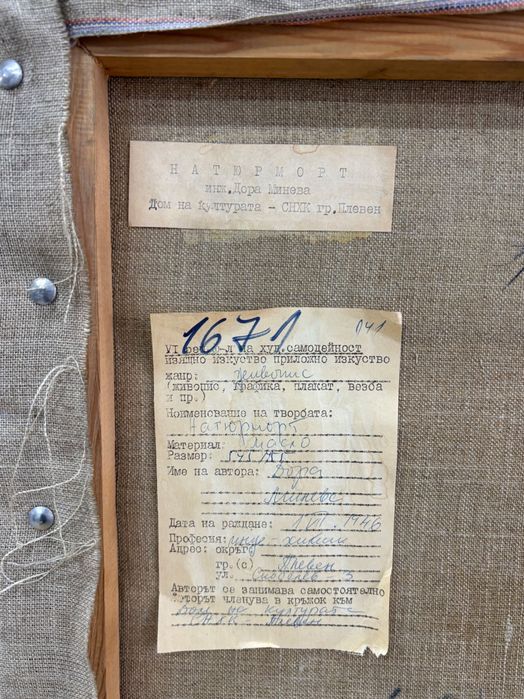 НАТЮРМОРТ
инж.Дора Минева
Дом на културата – СНХК гр.Плевен
1671
041
VI на худ.самодейност
изящно изкуство приложно изкуство
жанр: живопис
(живопис, графика, плакат, везба
и пр.)
Наименование на творбата:
Натюрморт
Материал: масло
Размер:
Име на автора: Дора
Минева
Дата на раждане: 1946
Професия: инж-химик
Адрес: окръг
гр.(с) Плевен
ул. Скобелев 3
Авторът се занимава самостоятелно
Авторът членува в кръжок към
Дом на културата
СНХК Плевен